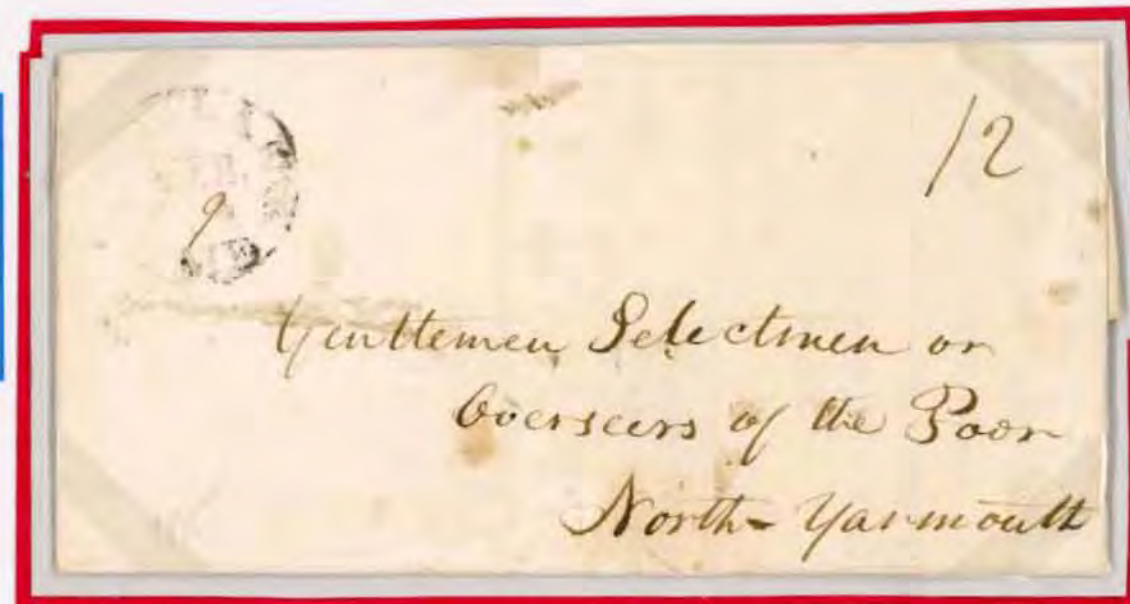 12
9
Gentlemen, Selectmen or
Overseers of the Poor
North-Yarmouth